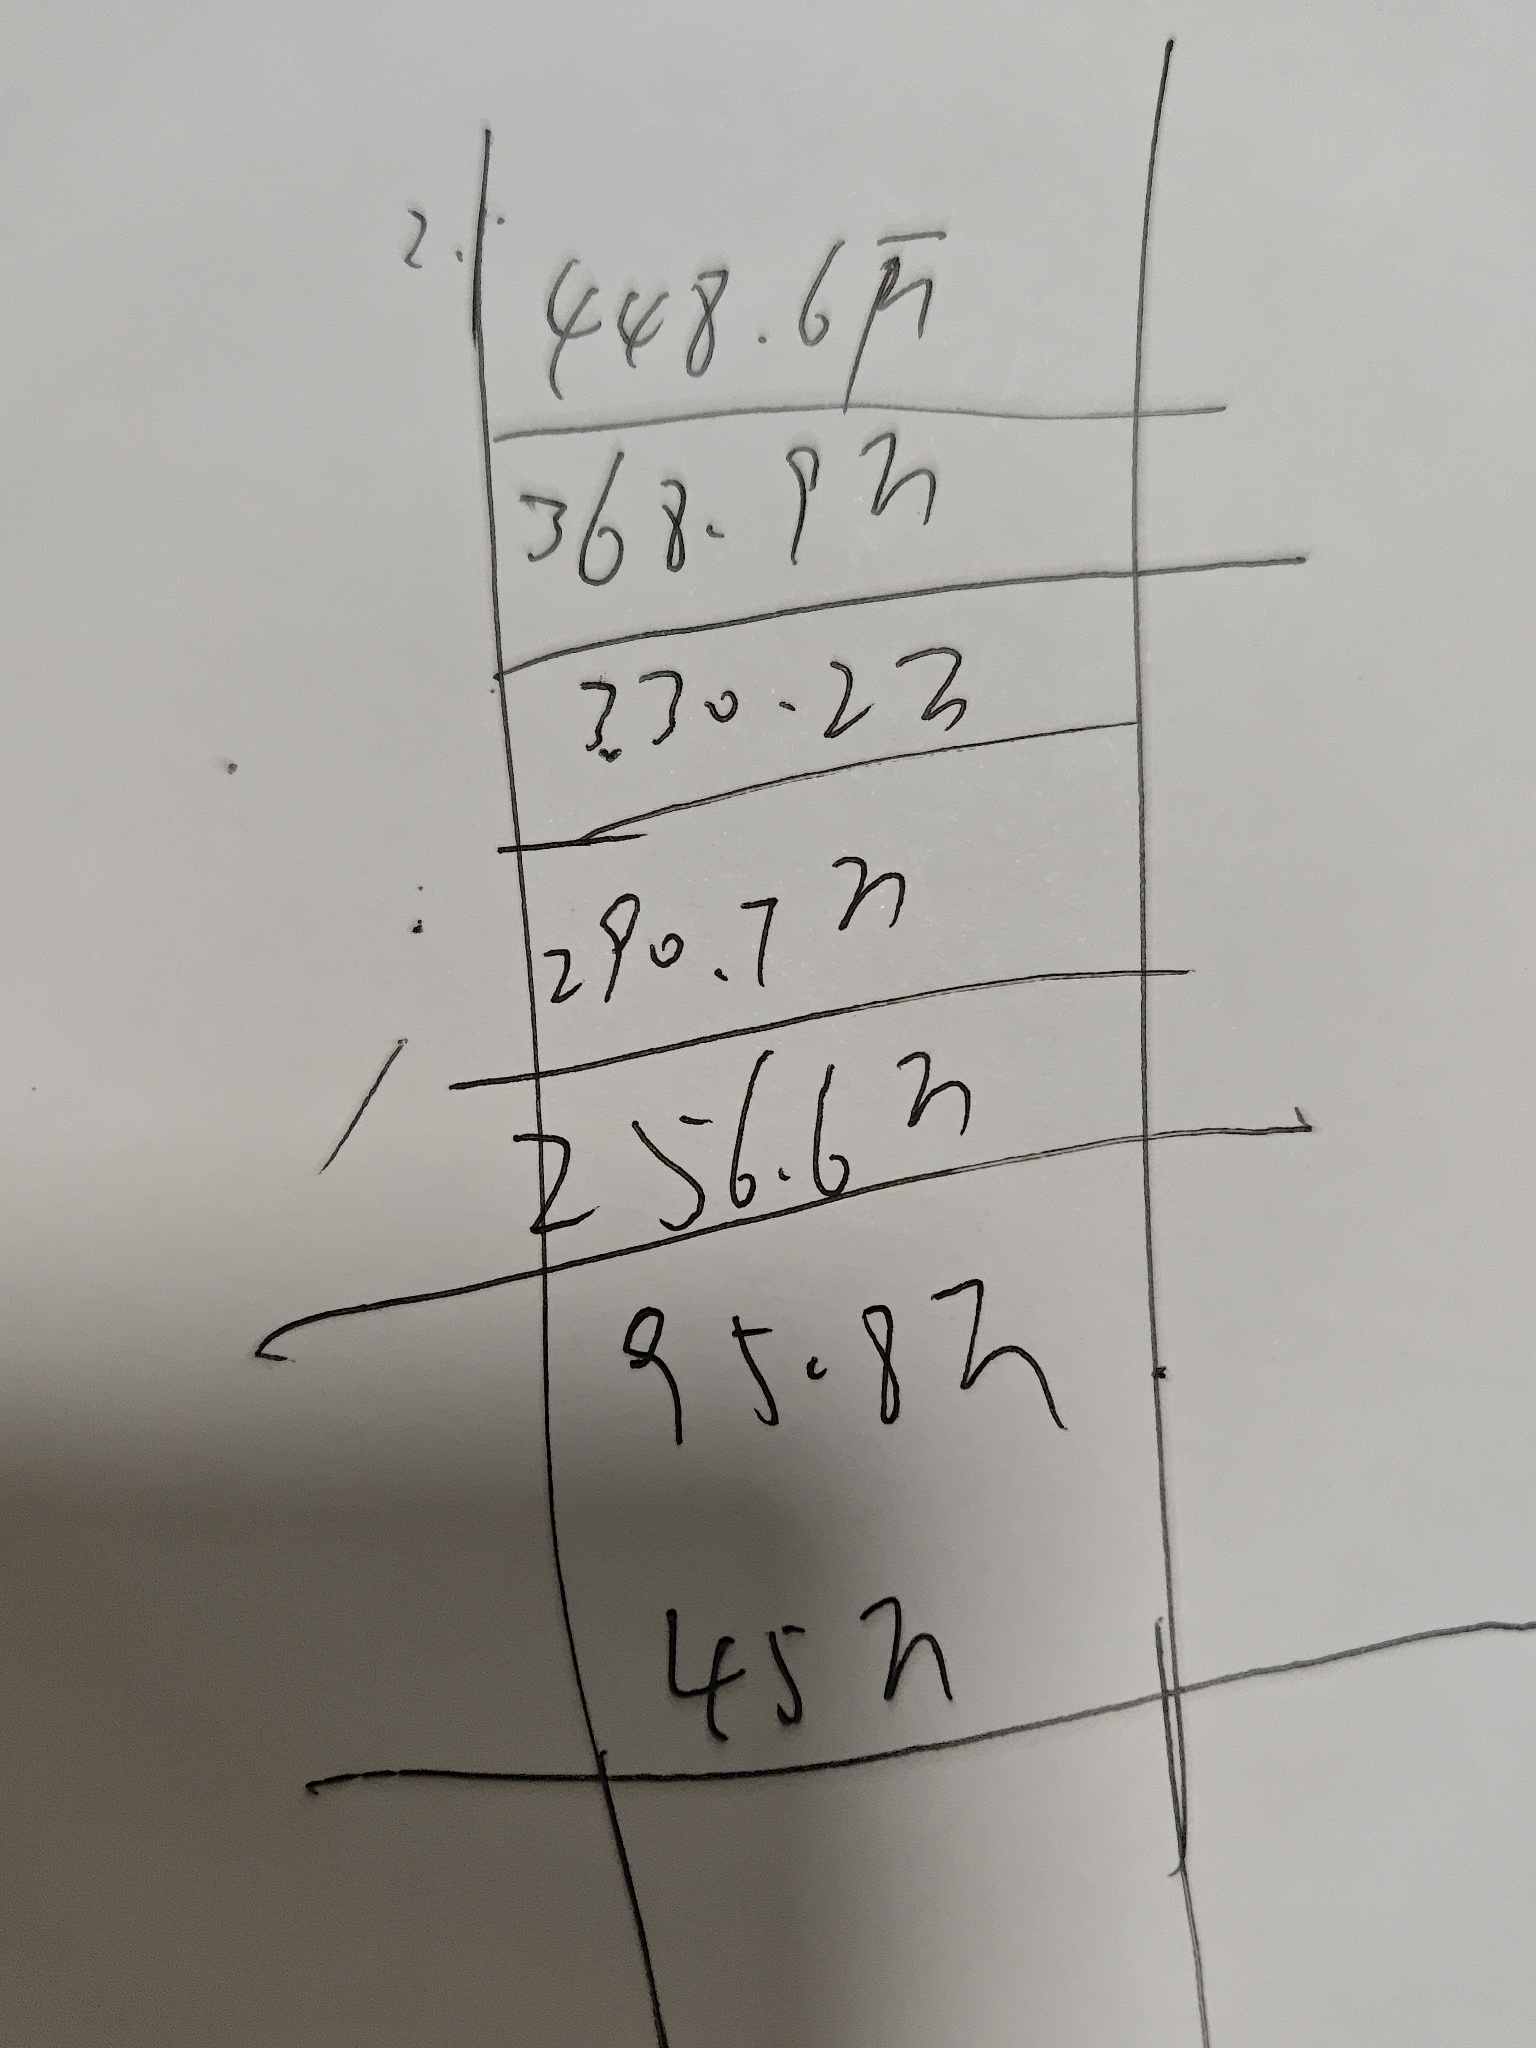 2.
448.6万
368.9万
330.2万
290.7万
256.6万
95.8万
45万